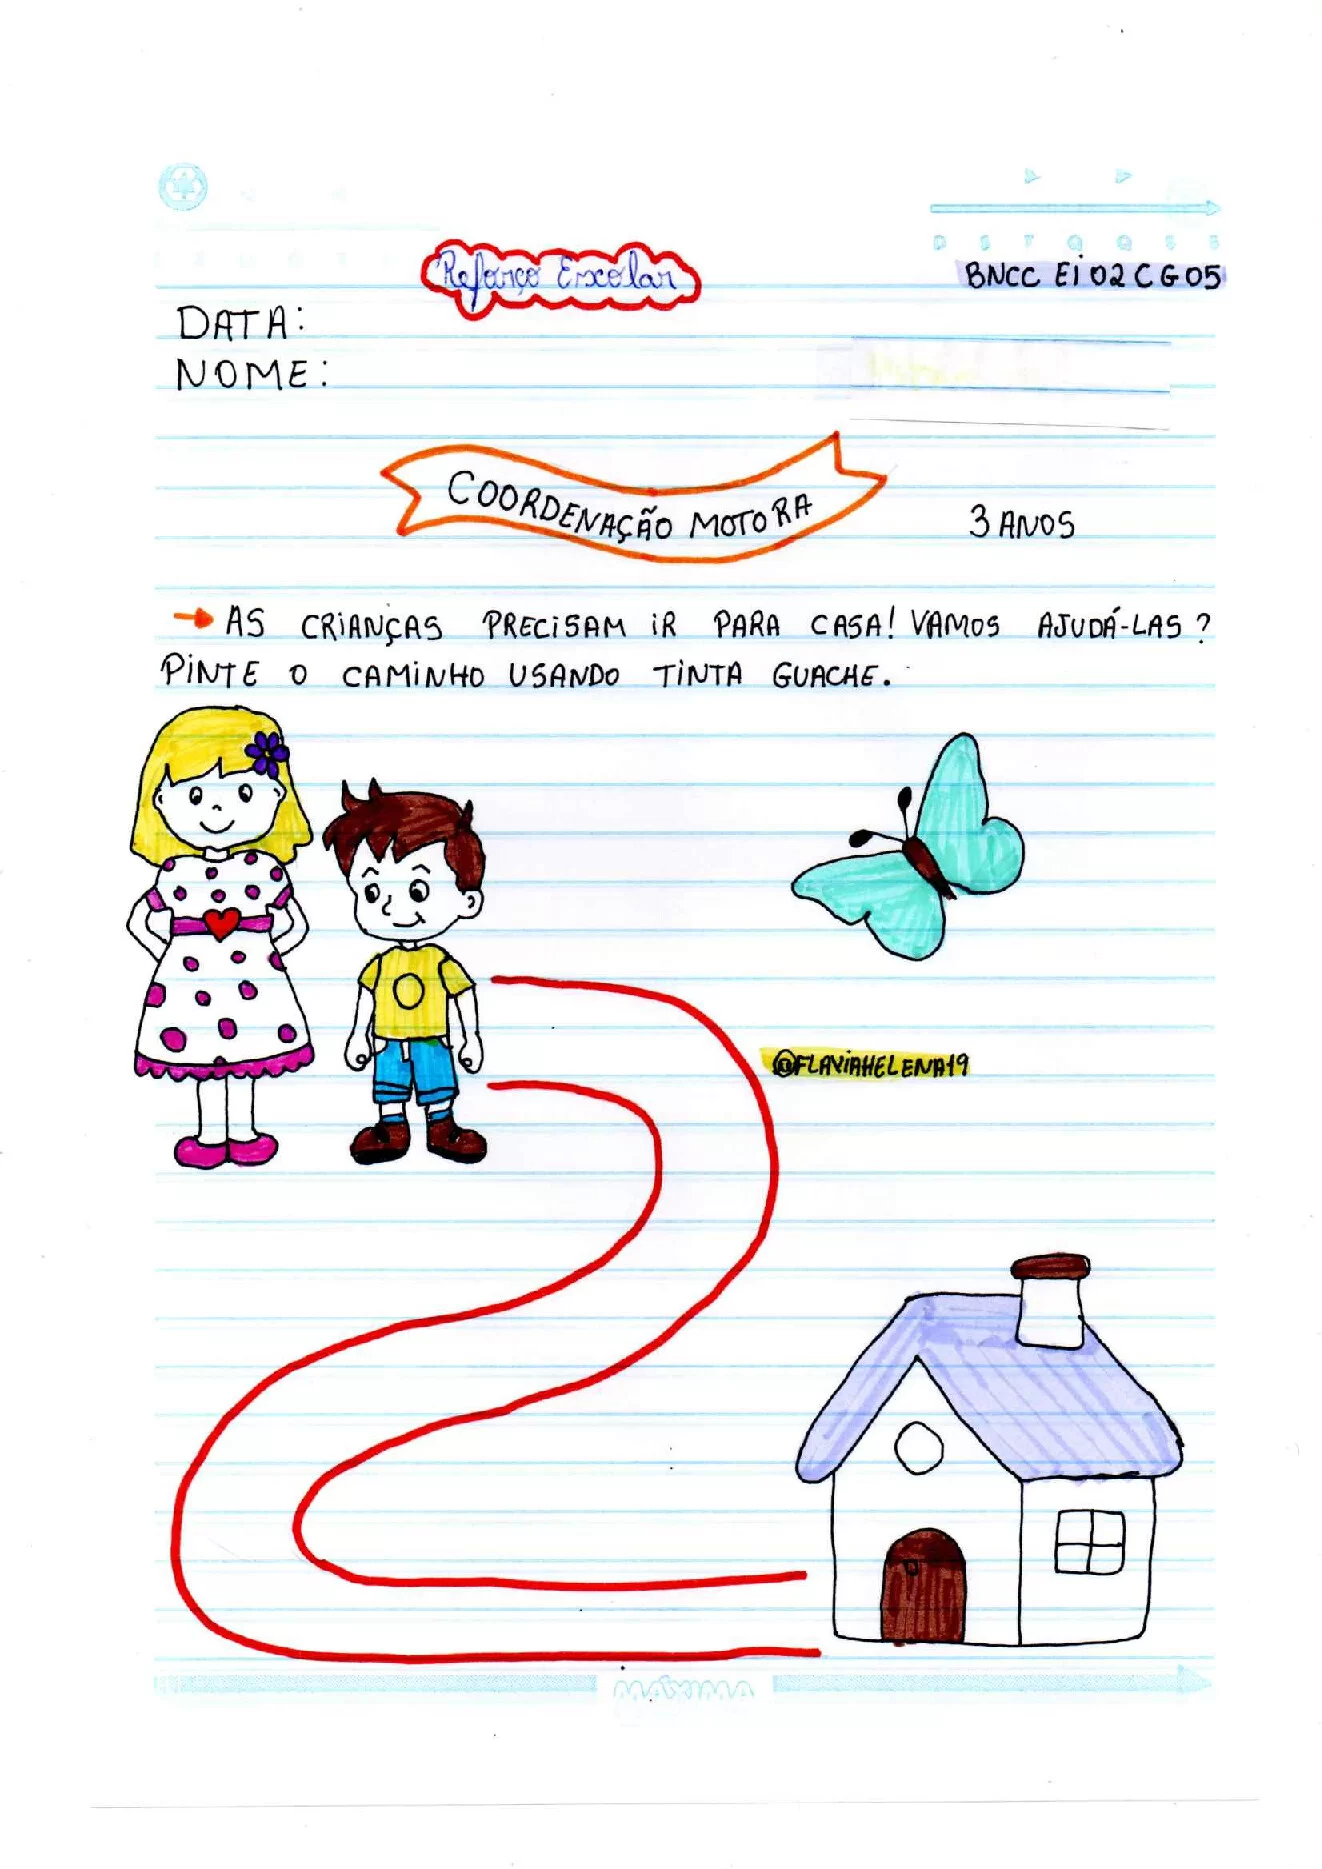 D S T Q Q S S
Reforço Escolar
BNCC Ei 02 CG05
DATA:
NOME:
COORDENAÇÃO MOTORA
3 ANOS
→ AS CRiANÇAS PRECiSAM iR PARA CASA! VAMOS AJUDÁ-LAS?
PiNTE O CAMiNHO USANDO TiNTA GUACHE.
@FLAViAHELENA19
MÁXIMA